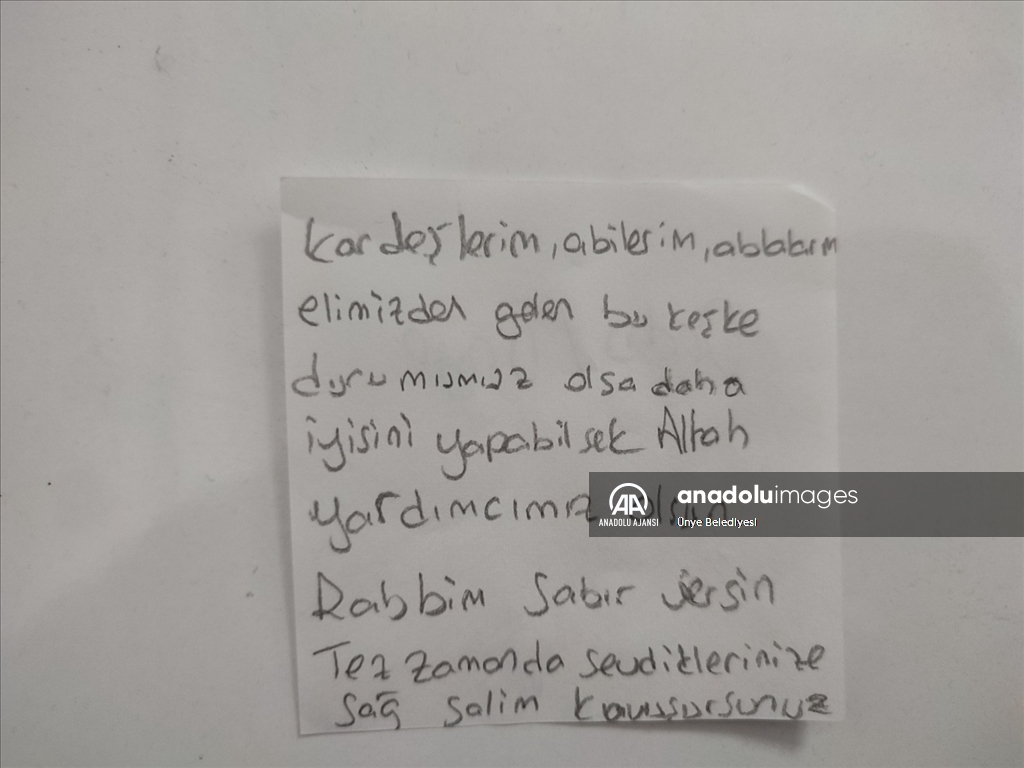 Kardeşlerim, abilerim, ablalarım
elimizden gelen bu keşke
durumumuz olsa daha
iyisini yapabilsek Allah
yardımcımız olsun
Rabbim Sabır versin
Tez zamanda sevdiklerinize
Sağ salim kavuşursunuz
anadoluimages
ANADOLU AJANSI
Ünye Belediyesi